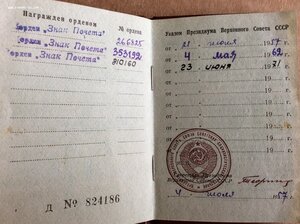 Награжден орденом № ордена
орден „Знак Почета" 266325
орден „Знак Почета" 353192
орден „Знак Почета" 810160
Д № 824186
Указом Президиума Верховного Совета СССР
от 21 июля 1957 г.
от 4 мая 1962 г.
от 23 июня 1971 г.
от 19 г.
от 19 г.
от 19 г.
от 19 г.
Верховного Совета СССР
4 июля 1957 г.